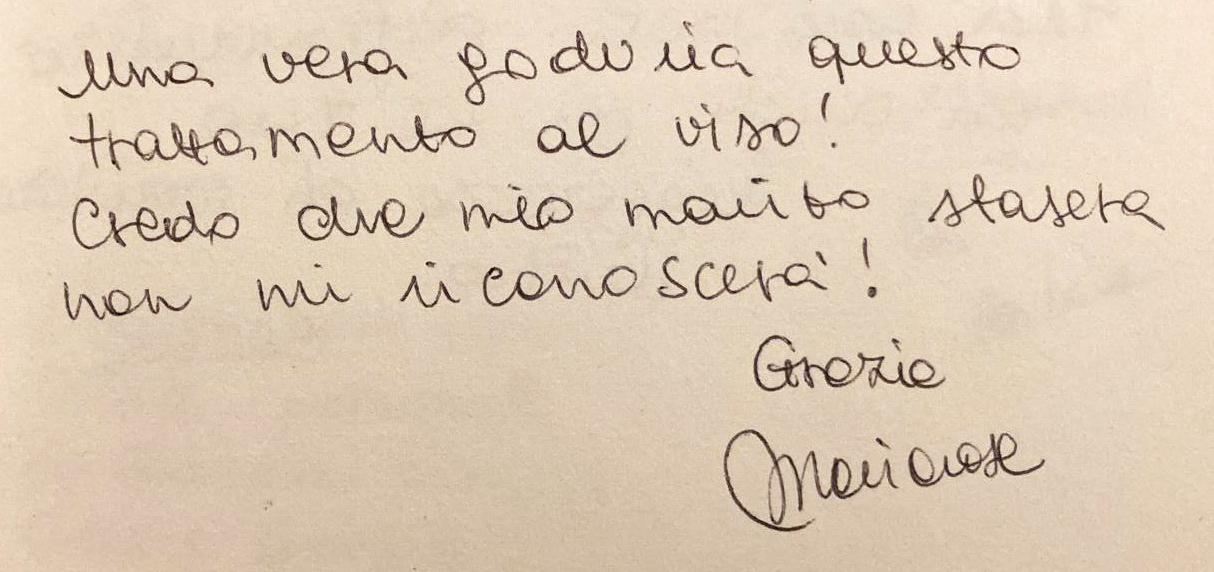 Una vera goduria questo
trattamento al viso!
Credo che mio marito stasera
non mi riconoscerà!
Grazie
Mariarosa